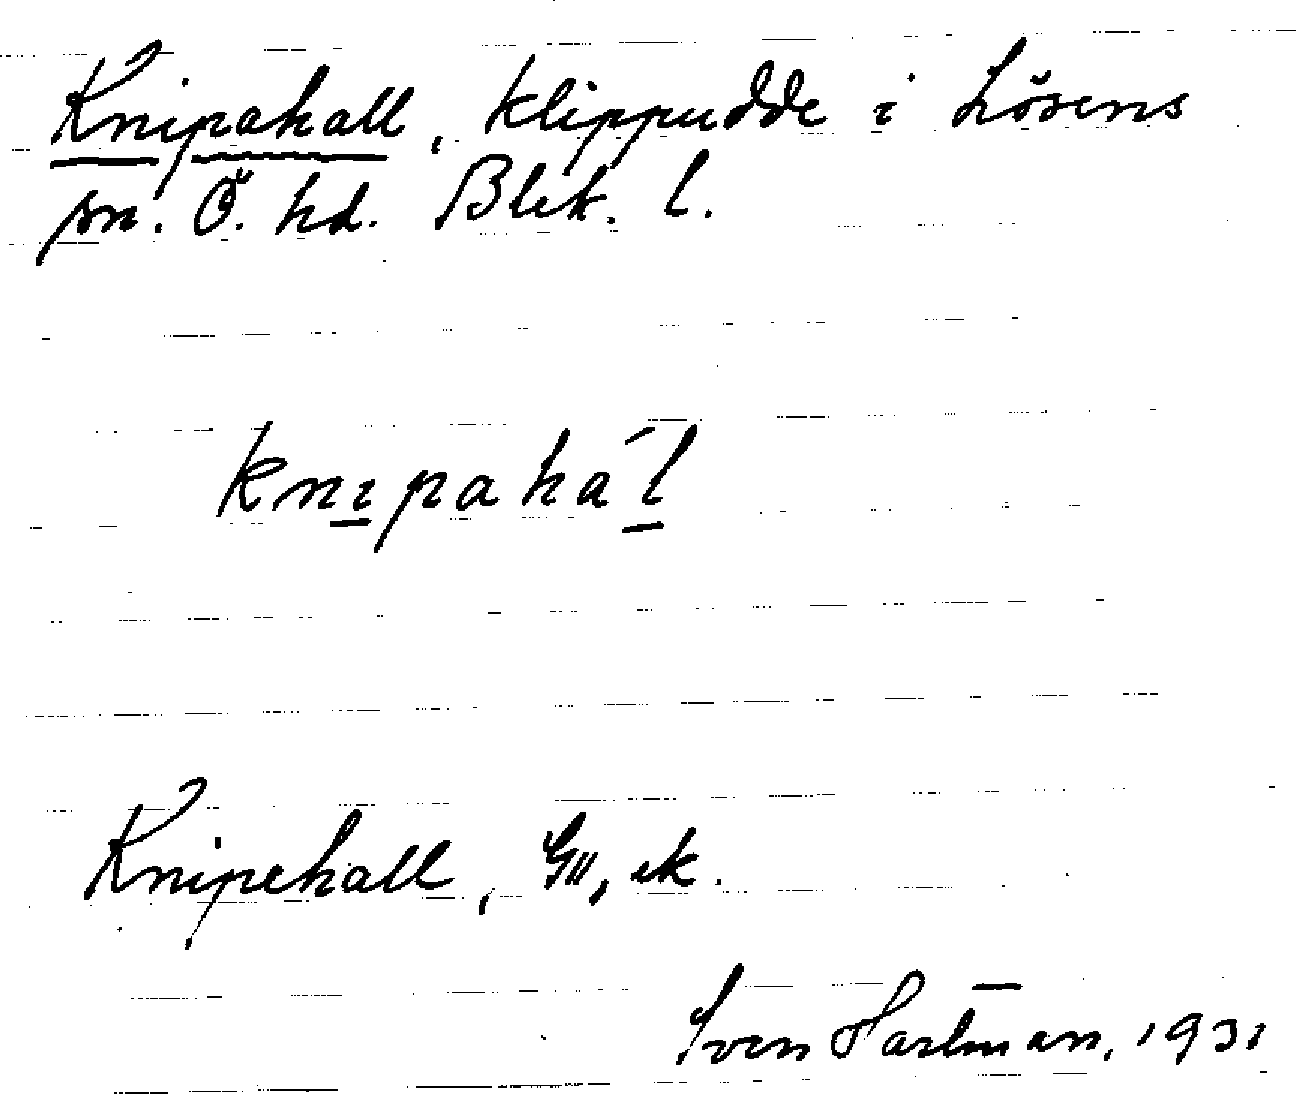 Knipahall, klippudde i Lösens
sn. Ö. hd. Blek. l.
knipahál
Knipehall, GII, ek.
Sven Hartman, 1931